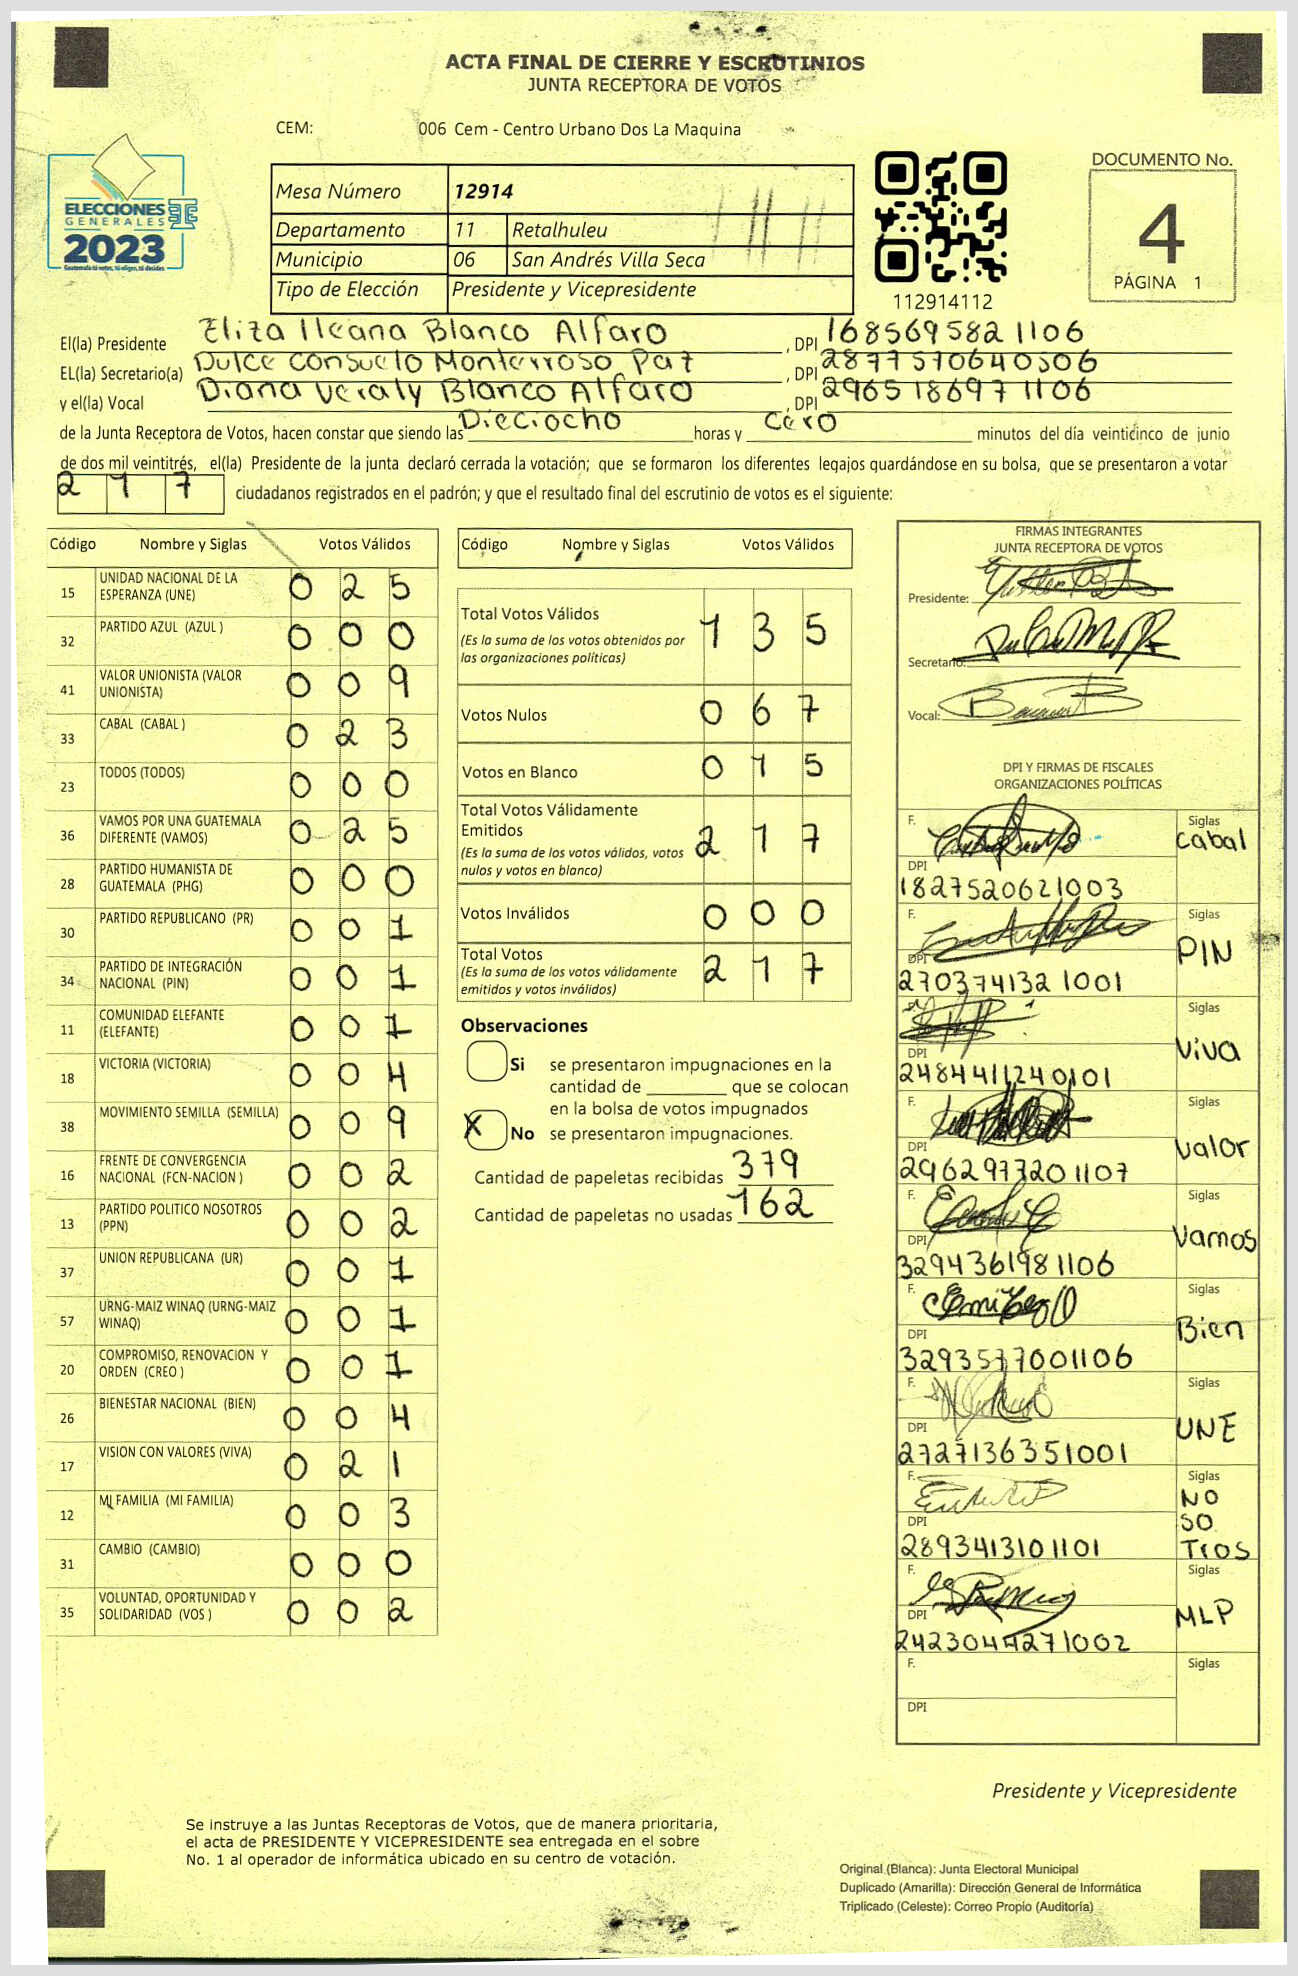 ACTA FINAL DE CIERRE Y ESCRUTINIOS
JUNTA RECEPTORA DE VOTOS
CEM: 006 Cem - Centro Urbano Dos La Maquina
ELECCIONES
GENERALES
2023
Guatemala tú votas, tú eliges, tú decides
Mesa Número 12914
Departamento 11 Retalhuleu
Municipio 06 San Andrés Villa Seca
Tipo de Elección Presidente y Vicepresidente
112914112
DOCUMENTO No.
4
PÁGINA 1
El(la) Presidente Eliza Ileana Blanco Alfaro, DPI 168569582 1106
EL(la) Secretario(a) Dulce Consuelo Monterroso Paz, DPI 2877570640506
y el(la) Vocal Diana Veraly Blanco Alfaro, DPI 296518697 1106
de la Junta Receptora de Votos, hacen constar que siendo las Dieciocho horas y Cero minutos del día veinticinco de junio
de dos mil veintitrés, el(la) Presidente de la junta declaró cerrada la votación; que se formaron los diferentes legajos quardándose en su bolsa, que se presentaron a votar
2 1 7 ciudadanos registrados en el padrón; y que el resultado final del escrutinio de votos es el siguiente:
Código Nombre y Siglas Votos Válidos
15 UNIDAD NACIONAL DE LA ESPERANZA (UNE) 0 2 5
32 PARTIDO AZUL (AZUL ) 0 0 0
41 VALOR UNIONISTA (VALOR UNIONISTA) 0 0 9
33 CABAL (CABAL ) 0 2 3
23 TODOS (TODOS) 0 0 0
36 VAMOS POR UNA GUATEMALA DIFERENTE (VAMOS) 0 2 5
28 PARTIDO HUMANISTA DE GUATEMALA (PHG) 0 0 0
30 PARTIDO REPUBLICANO (PR) 0 0 1
34 PARTIDO DE INTEGRACIÓN NACIONAL (PIN) 0 0 1
11 COMUNIDAD ELEFANTE (ELEFANTE) 0 0 1
18 VICTORIA (VICTORIA) 0 0 4
38 MOVIMIENTO SEMILLA (SEMILLA) 0 0 9
16 FRENTE DE CONVERGENCIA NACIONAL (FCN-NACION ) 0 0 2
13 PARTIDO POLITICO NOSOTROS (PPN) 0 0 2
37 UNION REPUBLICANA (UR) 0 0 1
57 URNG-MAIZ WINAQ (URNG-MAIZ WINAQ) 0 0 1
20 COMPROMISO, RENOVACION Y ORDEN (CREO ) 0 0 1
26 BIENESTAR NACIONAL (BIEN) 0 0 4
17 VISION CON VALORES (VIVA) 0 2 1
12 MI FAMILIA (MI FAMILIA) 0 0 3
31 CAMBIO (CAMBIO) 0 0 0
35 VOLUNTAD, OPORTUNIDAD Y SOLIDARIDAD (VOS ) 0 0 2
Código Nombre y Siglas Votos Válidos
Total Votos Válidos 1 3 5
(Es la suma de los votos obtenidos por
las organizaciones políticas)
Votos Nulos 0 6 7
Votos en Blanco 0 1 5
Total Votos Válidamente
Emitidos 2 1 7
(Es la suma de los votos válidos, votos
nulos y votos en blanco)
Votos Inválidos 0 0 0
Total Votos 2 1 7
(Es la suma de los votos válidamente
emitidos y votos inválidos)
Observaciones
Si se presentaron impugnaciones en la
cantidad de ________ que se colocan
en la bolsa de votos impugnados
X No se presentaron impugnaciones.
Cantidad de papeletas recibidas 379
Cantidad de papeletas no usadas 162
FIRMAS INTEGRANTES
JUNTA RECEPTORA DE VOTOS
Presidente:
Secretario:
Vocal:
DPI Y FIRMAS DE FISCALES
ORGANIZACIONES POLÍTICAS
F. Siglas Cabal
DPI 1827520621003
F. Siglas PIN
DPI 270374132 1001
F. Siglas Viva
DPI 2484411240101
F. Siglas Valor
DPI 2962977201107
F. Siglas Vamos
DPI 3294361981106
F. Siglas Bien
DPI 3293577001106
F. Siglas UNE
DPI 2727136351001
F. Siglas NO SO Tros
DPI 2893413101101
F. Siglas MLP
DPI 2423044271002
F. Siglas
DPI
Presidente y Vicepresidente
Se instruye a las Juntas Receptoras de Votos, que de manera prioritaria,
el acta de PRESIDENTE Y VICEPRESIDENTE sea entregada en el sobre
No. 1 al operador de informática ubicado en su centro de votación.
Original (Blanca): Junta Electoral Municipal
Duplicado (Amarilla): Dirección General de Informática
Triplicado (Celeste): Correo Propio (Auditoría)